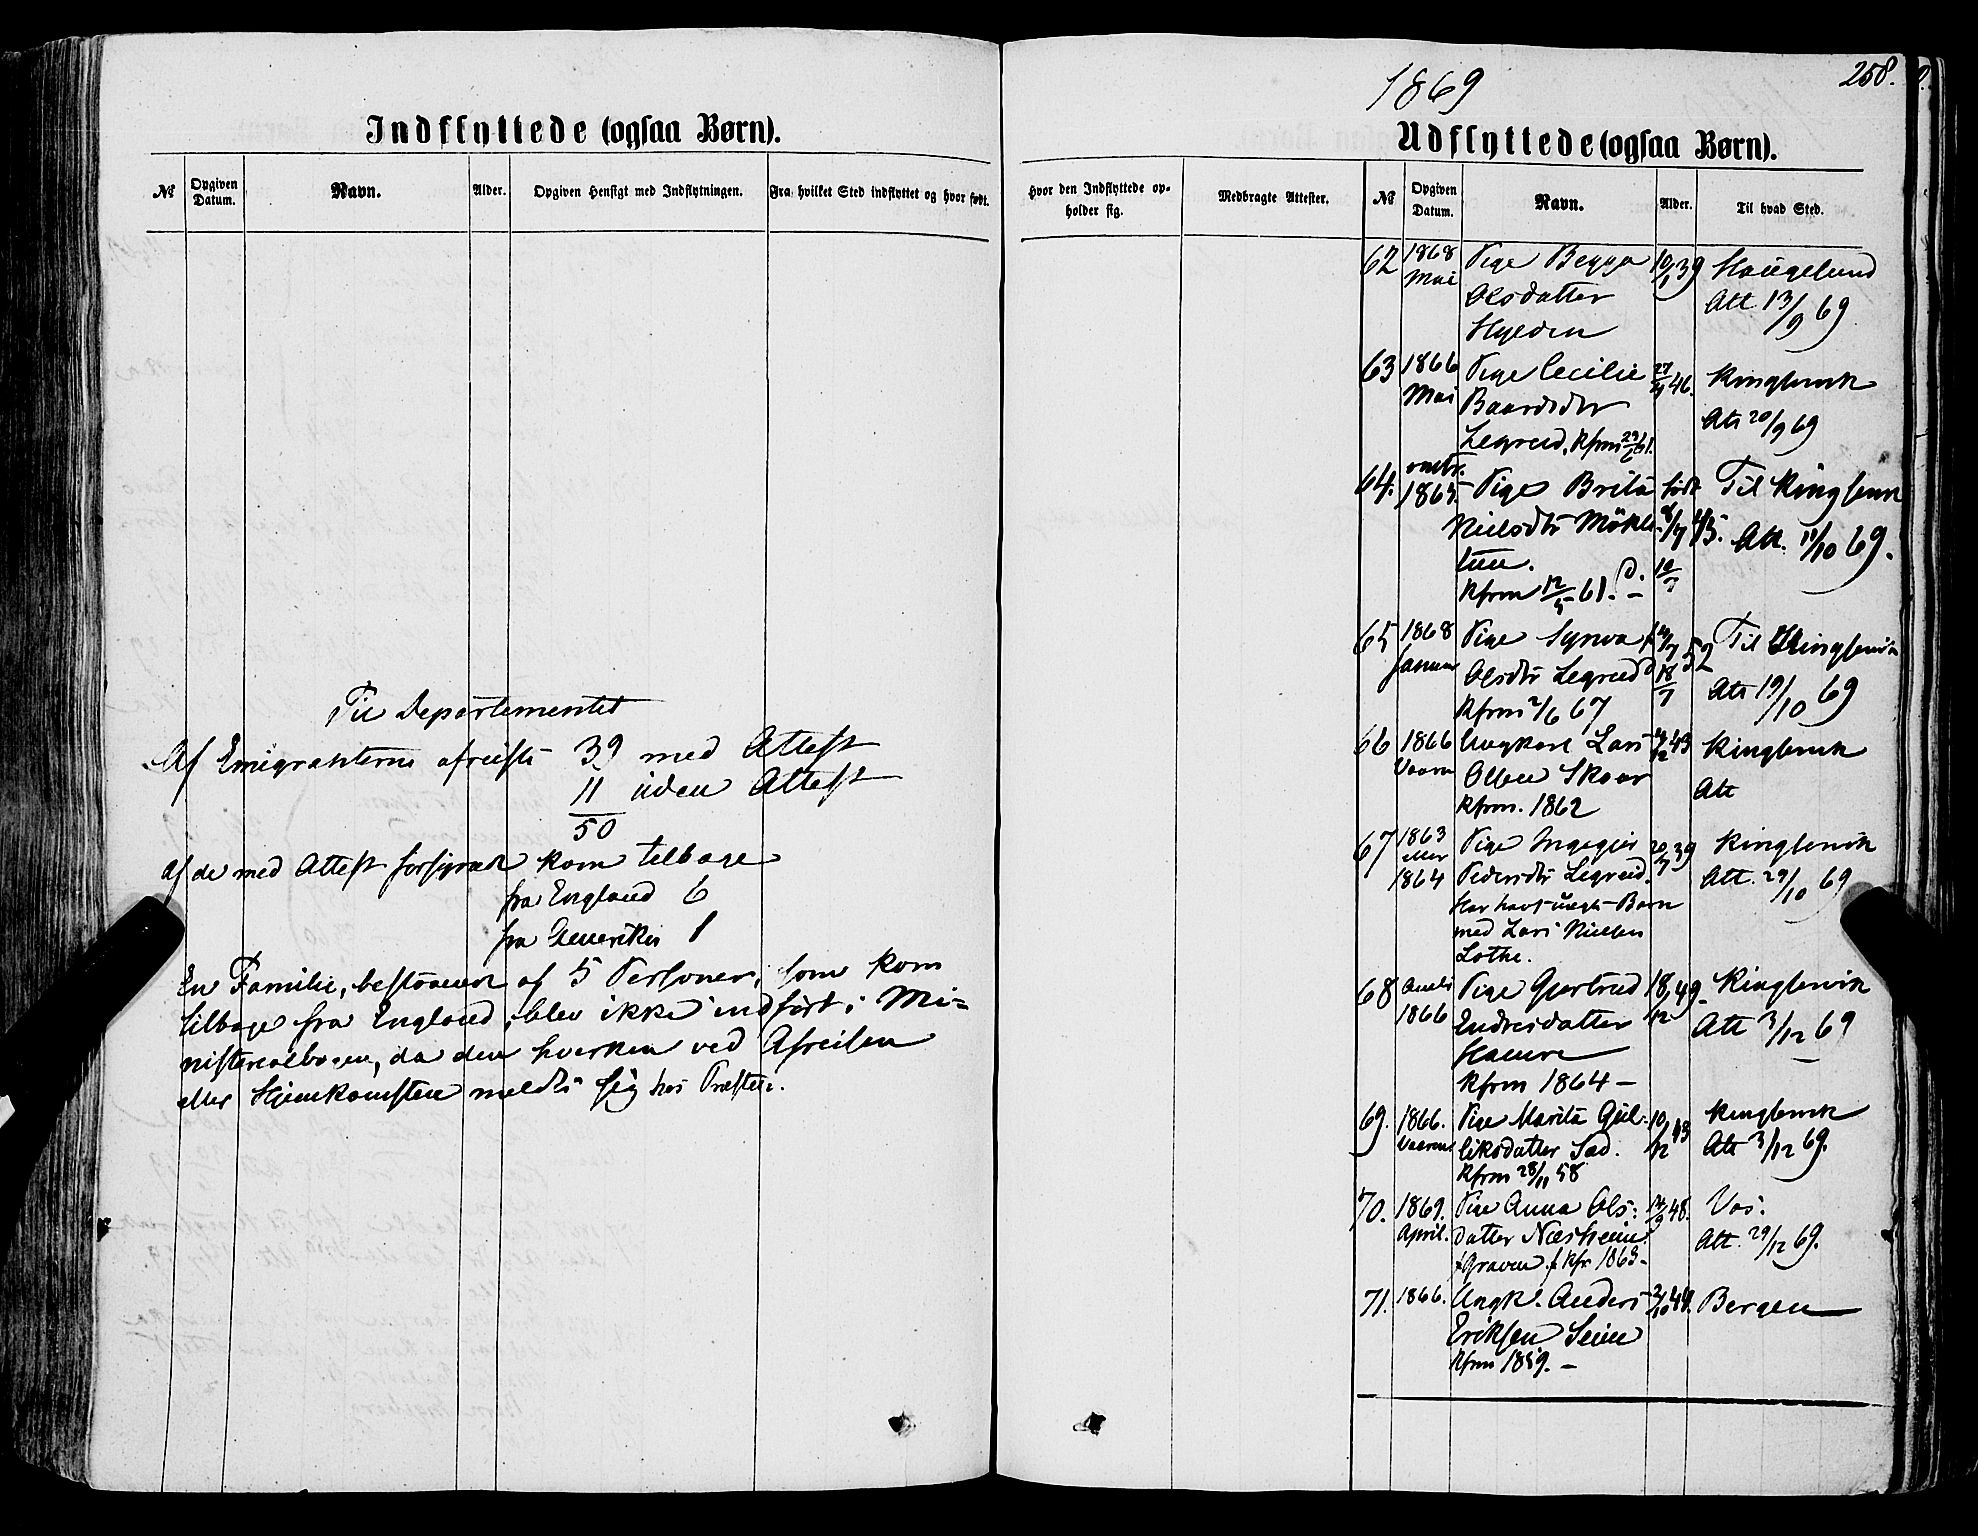 1869
258.
Indflyttede (ogsaa Børn).
Udflyttede (ogsaa Børn).
№
Opgiven Datum.
Navn.
Alder.
Opgiven Hensigt med Indflytningen.
Fra hvilket Sted indflyttet og hvor født.
Hvor den Indflyttede opholder sig.
Medbragte Attester.
№
Opgiven Datum.
Navn.
Alder.
Til hvad Sted.
Til Departementet
Af Emigranterne afreiste 39 med Attest
11 uden Attest
50
Af de med Attest forsynede kom tilbage
fra England 6
fra 1
En Familie, bestaaende af 5 Personer, som kom
tilbage fra England, blev ikke indført i Mi-
nisterialbogen, da den hverken ved Afreisen
eller Hjemkomsten meldte sig hos Præsten.
62 1868 Pige 10/1 39 Haugesund
Mai Olsdatter Att. 13/9 69
63 1866 Pige Cecilie 46. Ringløvik
Mai Baardsdtr Att 20/9 69
Legreid, Kfrm 61.
64. 1865 Pige Brita født Til Ringløvik
Nielsdtr Møkle- 8/7 45. Att. 11/10 69.
tun. D. 10/7
Kfrm 12/5 61. -
65 1868 Pige Synva 52 Til Ringløvik
Januar Olsdtr Legreid D 18/7 Att 19/10 69
Kfrm 2/6 67
66 1866 Ungkarl Lars 43 Ringløvik
Vaaren Olsen Skaar Att
Kfrm. 1862
67 1863 Pige Ingegjer 20/7 39 Ringløvik
eller Pedersdtr Legreid. Att. 29/10 69
1864 Har havt uægte Barn
med Lars Nielsen
Lothe.
68 1866 Pige Gjertrud 18/12 49. Ringløvik
Endresdatter Att 3/12 69
Hamre
Kfrm 1864 -
69. 1866. Pige Marita Gul- 10/12 43 Ringløvik
Vaaren liksdatter Sad. Att 3/12 69.
Kfrm 28/11 58
70. 1869. Pige Anna Ols- 14/9 48. Vos.
April. datter Næsheim Att. 29/12 69.
Graven Kfr 1863-
71. 1866. Ungk. Anders 2/10 44. Bergen
Eriksen Seim
Kfrm 1859. -